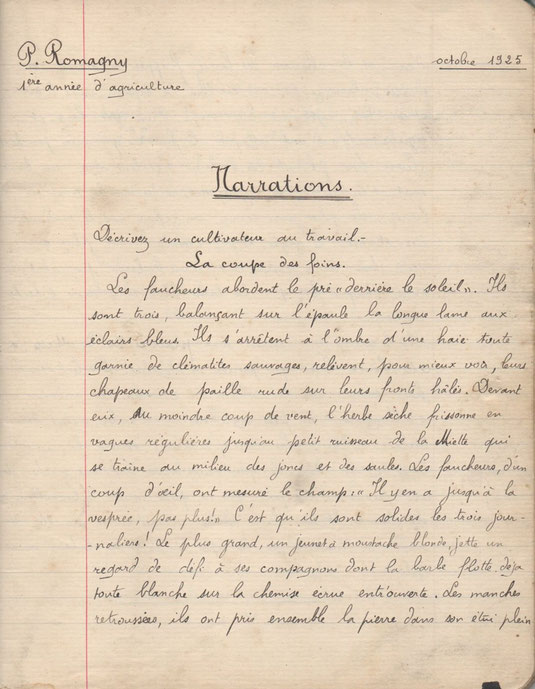 P. Romagny
octobre 1925
1ère année d'agriculture
Narrations.
Décrivez un cultivateur au travail.-
La coupe des foins.
Les faucheurs abordent le pré "derrière le soleil". Ils
sont trois, balançant sur l'épaule la longue lame aux
éclairs bleus. Ils s'arrêtent à l'ombre d'une haie toute
garnie de clématites sauvages, relèvent, pour mieux voir, leurs
chapeaux de paille rude sur leurs fronts hâlés. Devant
eux, au moindre coup de vent, l'herbe sèche frissonne en
vagues régulières jusqu'au petit ruisseau de la Miette qui
se traîne au milieu des joncs et des saules. Les faucheurs, d'un
coup d'œil, ont mesuré le champ: "Il y en a jusqu'à la
vesprée, pas plus!" C'est qu'ils sont solides les trois jour-
naliers! Le plus grand, un jeunet à moustache blonde, jette un
regard de défi à ses compagnons dont la barbe flotte, déjà
toute blanche sur la chemise écrue entr'ouverte. Les manches
retroussées, ils ont pris ensemble la pierre dans son étui plein